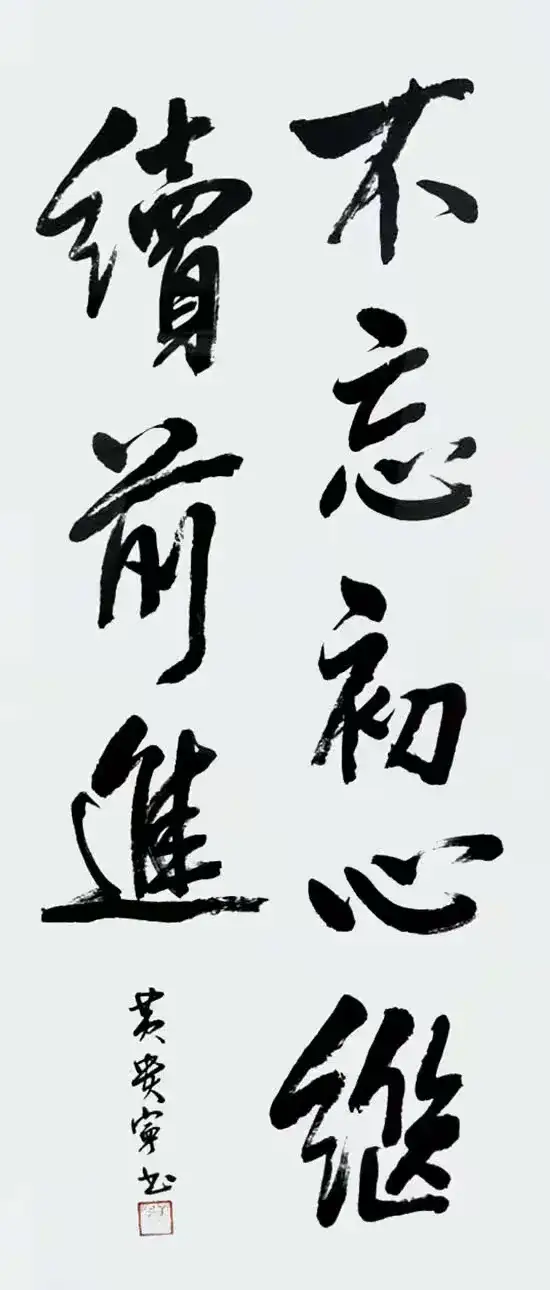 不忘初心繼
續前進
黄贵寧书